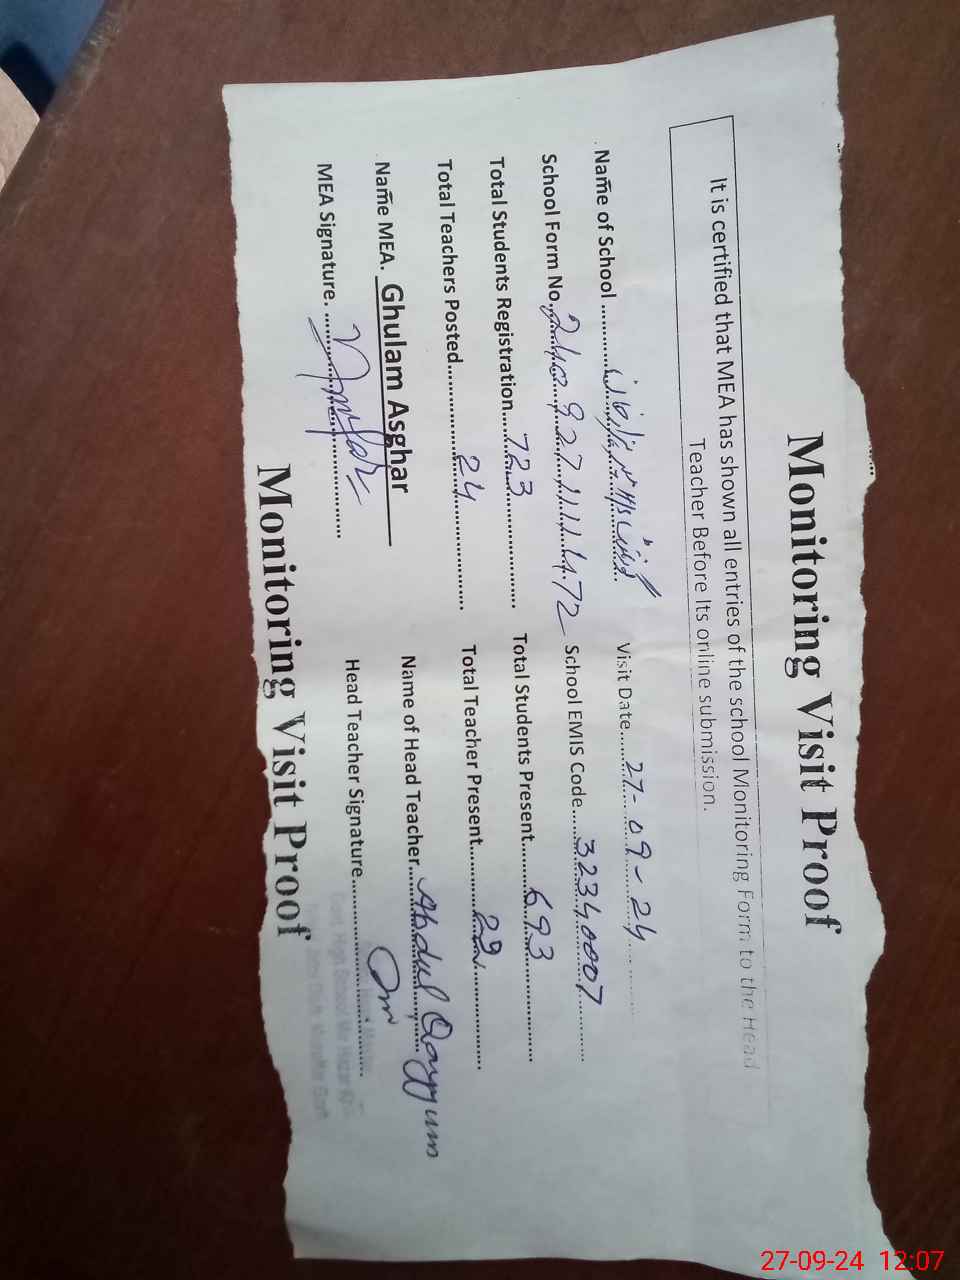 Monitoring Visit Proof
It is certified that MEA has shown all entries of the school Monitoring Form to the Head
Teacher Before Its online submission.
Name of School .......... Visit Date 27-09-24
School Form No. 240927111472 School EMIS Code 32340007
Total Students Registration 723 Total Students Present 693
Total Teachers Posted 24 Total Teacher Present 22
Name MEA. Ghulam Asghar Name of Head Teacher Abdul Qayyum
MEA Signature. Head Teacher Signature
Monitoring Visit Proof
27-09-24 12:07